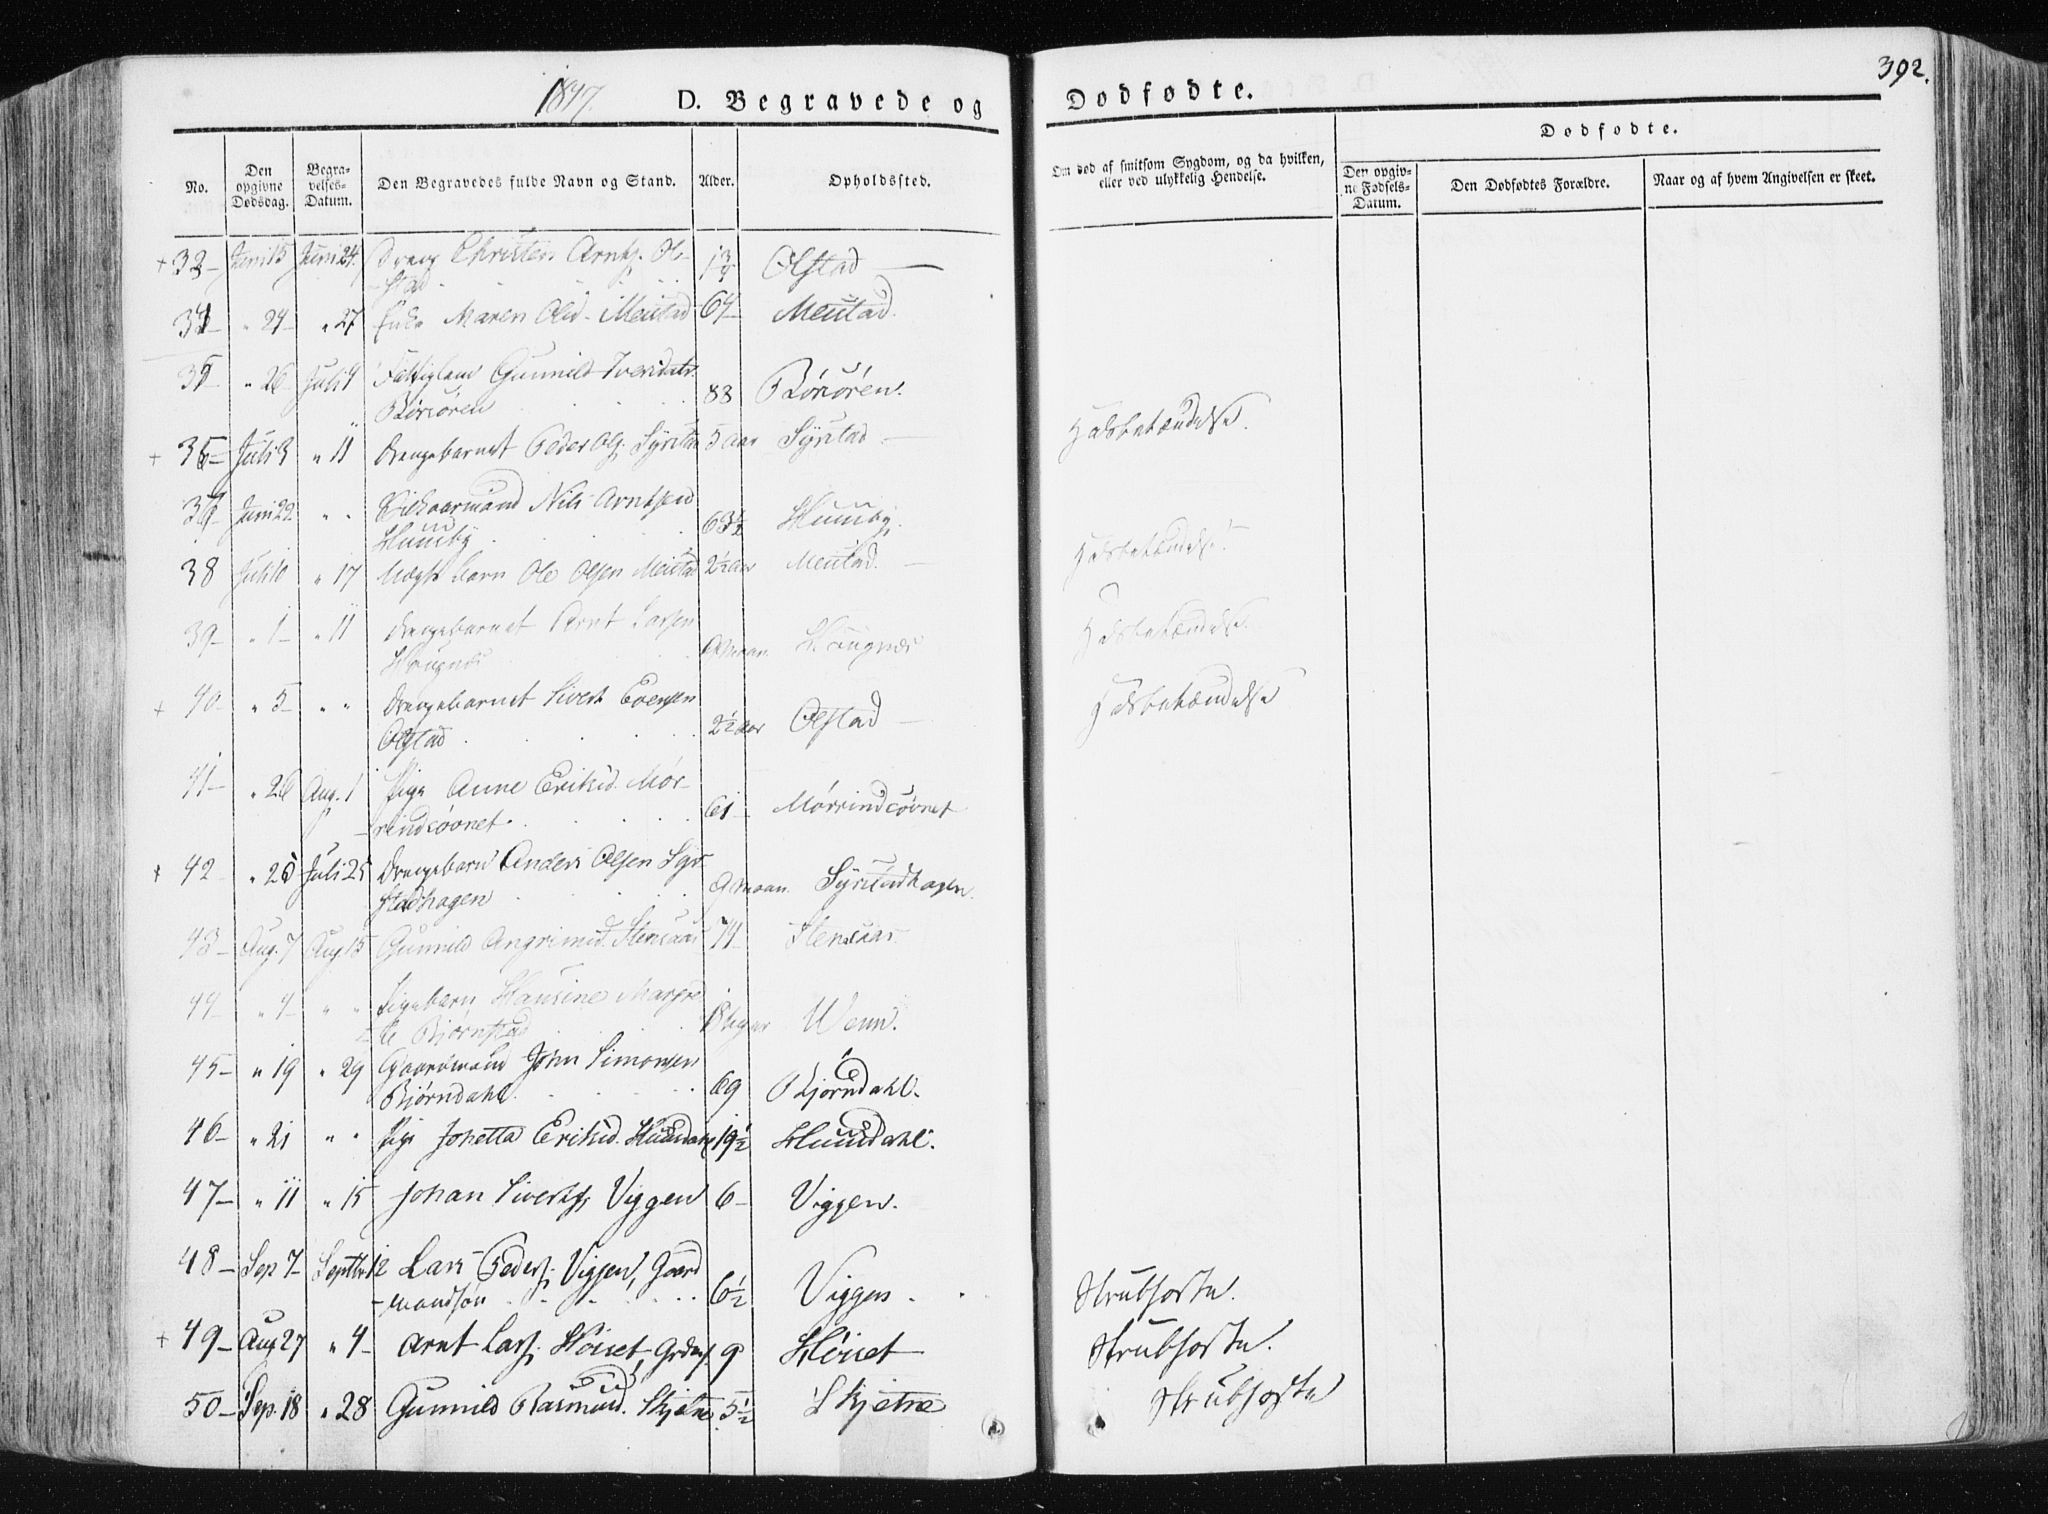 1847.
D. Begravede og
Dødfødte.
392.
No.
Den opgivne Dødsdag.
Begravelses-Datum.
Den Begravedes fulde Navn og Stand.
Alder.
Opholdssted.
Om død af smitsom Sygdom, og da hvilken, eller ved ulykkelig Hendelse.
Dødfødte.
Den opgivne Fødsels-Datum.
Den Dødfødtes Forældre.
Naar og af hvem Angivelsen er skeet.
+ 33 Juni 15 Juni 24. Dreng Christen Arnts. Ol-
stad Olstad
34 " 24 " 27 Enke Maren Olsd. Meistad 64 Meistad.
35 " 26 Juli 4 Fattiglem Gunnild Iversdatr.
Børsören 88 Börsören.
+ 36 Juli 3 " 11 Drengebarnet Peder Ols. Syrstad 5 Aar Syrstad Halsbetændelse.
37 Juni 22 " " Nils Arntsen
Huusby 63½ Huusby.
38 Juli 10 " 17 barn Ole Olsen Meistad 2½ aar Meistad. Halsbetændelse.
39 " 1 " 11 Drengebarnet Arnt Larsen
Hougnes Maan. Hougnes Halsbetændelse.
+ 40 " 5 " " Drengebarnet Sivert Evensen
Olstad 2½ aar Olstad Halsbetændelse
41 " 26 Aug. 1 Pige Anne Eriksd. Mör-
rindsövnet 61 Mörrindsövnet
+ 42 " 20 Juli 25 Drengebarn Anders Olsen Syr-
stadhagen 9 Maan. Syrstadhagen.
43 Aug. 7 Aug 15 Gunnild Angrimsd. Stensaas 74 Stensaas
44 " 4 " " Pigebarn Hansine Margre-
te Björnstad Wenn.
45 " 19 " 29 Gaardmand John Simonsen
Björndahl 69 Bjørndahl.
46 " 21 " " Pige Johetta Eriksd. Huusdahl 19½ Huusdahl.
47 " 11 " 15 Johan Siverts. Viggen 6 Viggen.
48 Sep 7 Septbr 12 Lars Peders. Viggen, Gaard
mandsøn 6½ Viggen. Strubhoste.
+ 49 Aug 27 " 4 Arnt Lars. Höiset, Grdms. 9 Höiset Strubhoste.
50 Sep. 18 " 28 Gunnild Rasmusd. Skjetne 5½ Skjetne Strubhoste